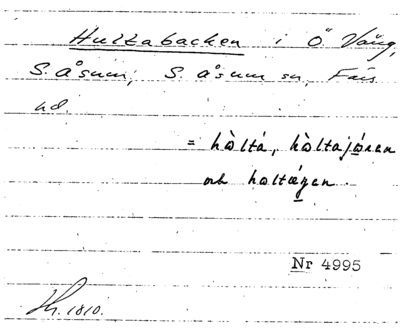 Hultabacken i Ö. Vång,
S. åsum, S. åsum sn, Färs
hd.
= hòltá, hòltajọ́ren
och holtǽgen.
Nr 4995
1810.